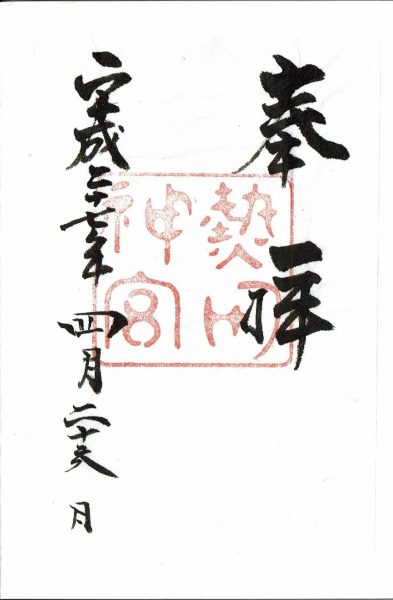 奉拝
熱田
神宮
平成二十七年四月二十六日